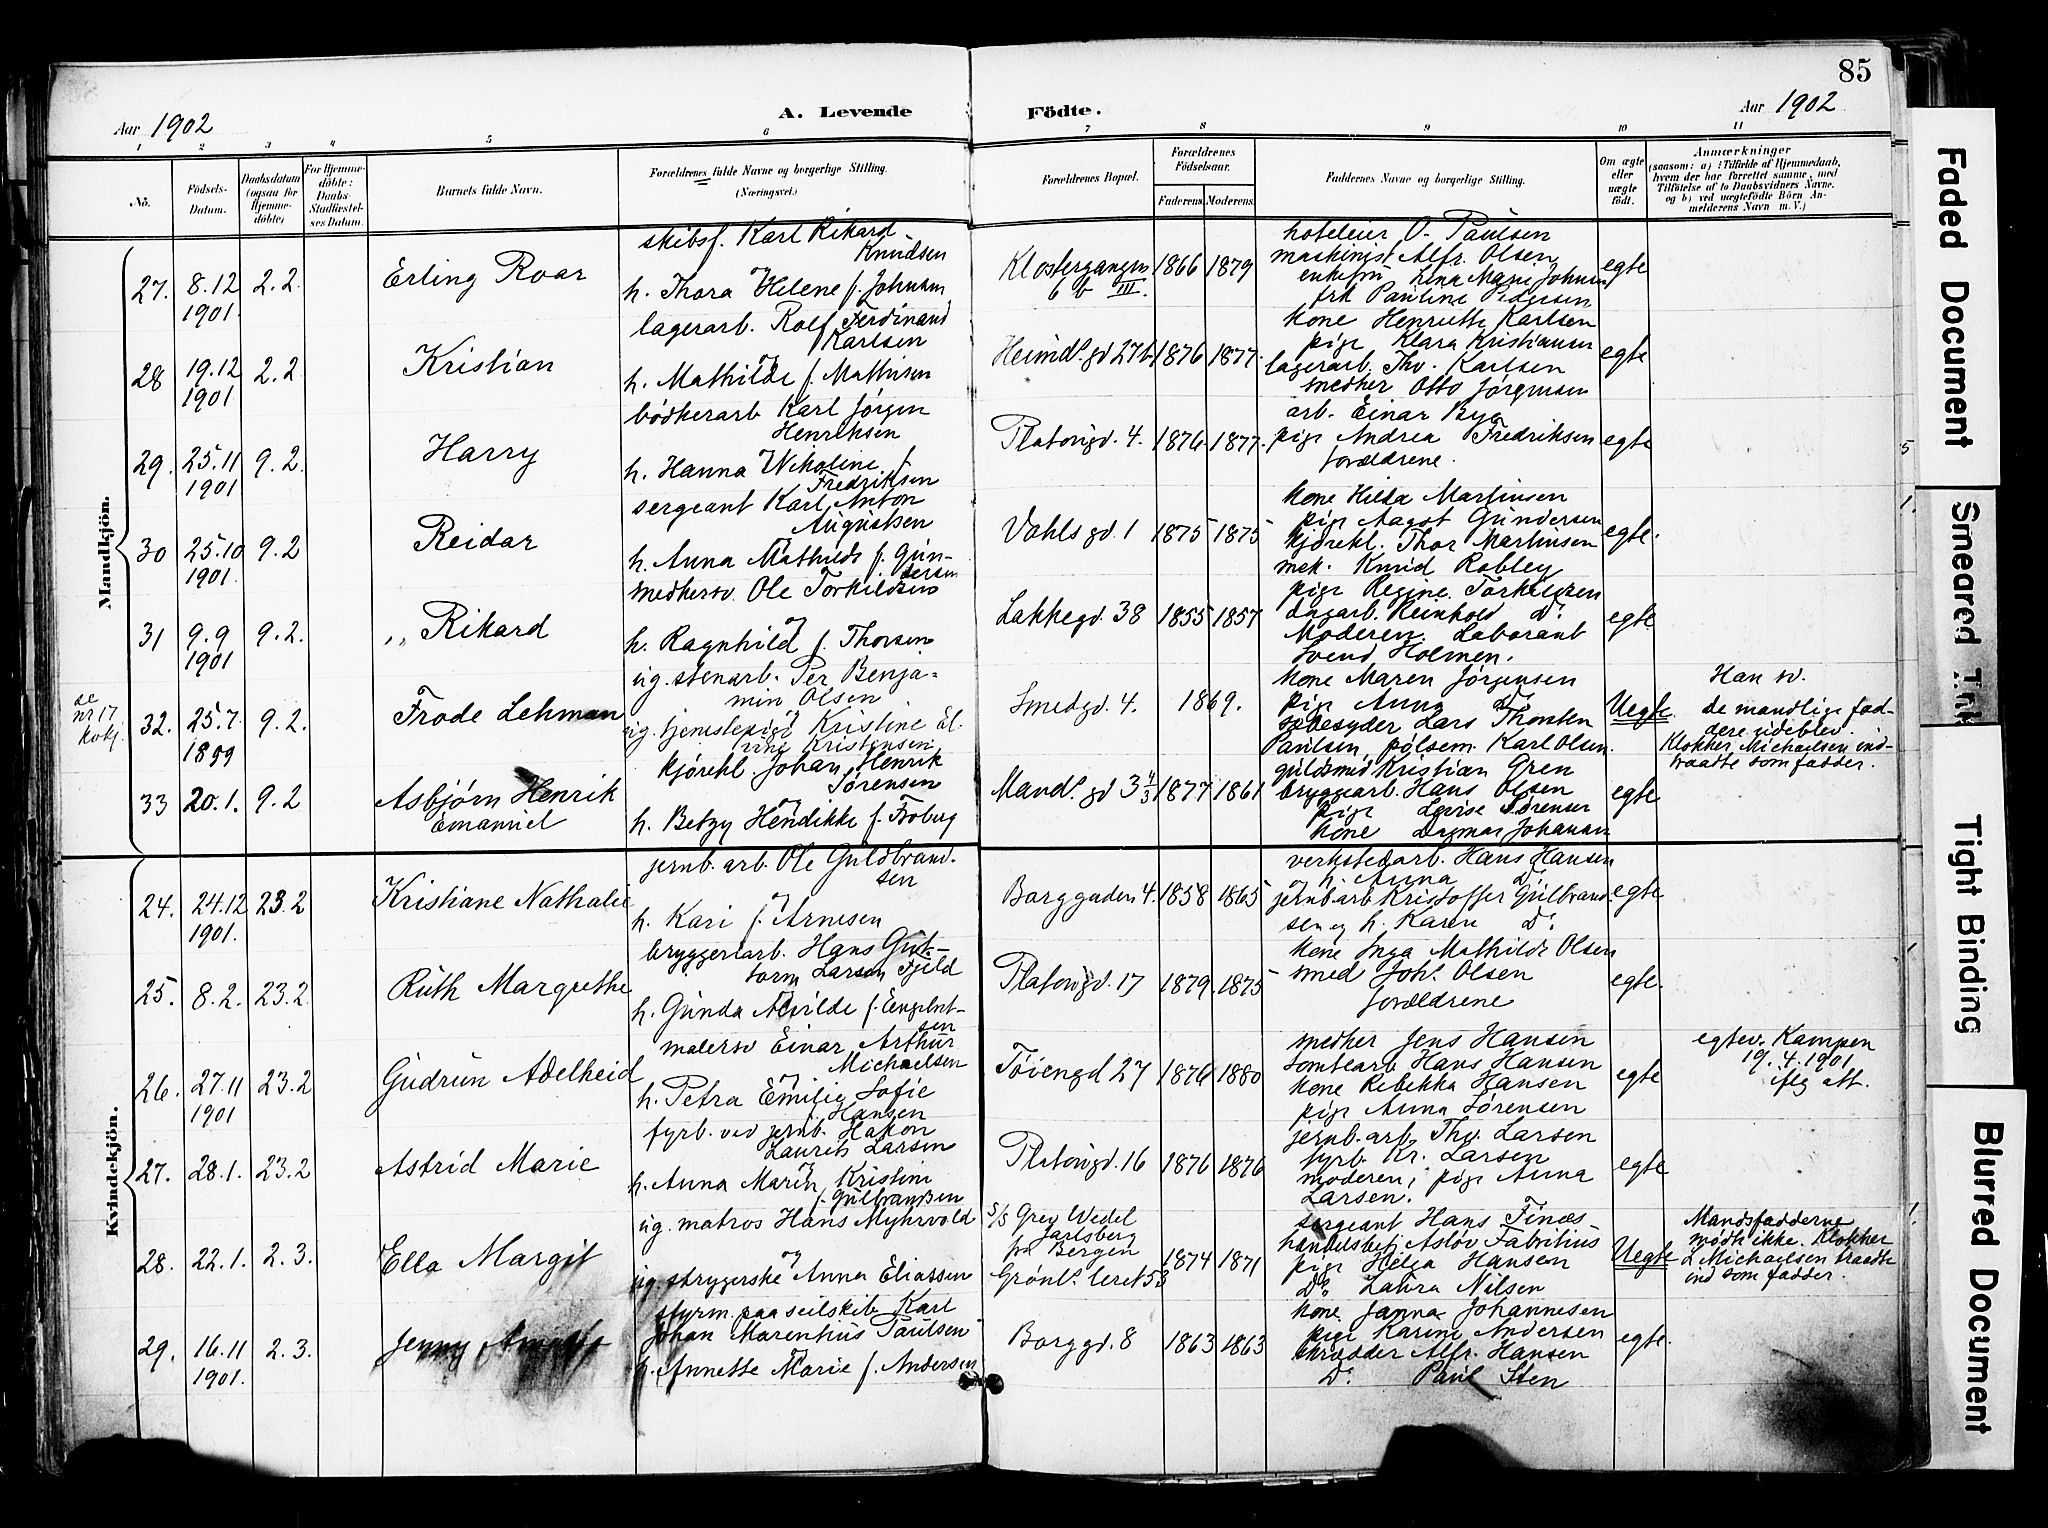 85
Aar 1902
A. Levende Födte.
Aar 1902
1 2 3 4 5 6 7 8 9 10 11
No.
Födsels-Datum.
Daabsdatum (ogsaa for Hjemme-döbte)
For Hjemme-döbte: Daabs-Stadfæstel-ses Datum.
Barnets fulde Navn.
Forældrenes fulde Navne og borgerlige Stilling.
(Næringsvei.)
Forældrenes Bopæl.
Forældrenes Födselsaar.
Faderens. Moderens.
Faddernes Navne og borgerlige Stilling.
Om ægte eller uægte födt.
Anmærkninger
(saasom: a) i Tilfælde af Hjemmedaab, hvem der har forrettet samme, med Tilföielse af to Daabsvidners Navne. og b) ved uægtefödte Börn An-melderens Navn m. V.)
Mandkjön.
27. 8.12 1901. 2.2.
Erling Roar
skibsf. Karl Rikard
Knudsen
og
h. Thora Helene f. Johnsen
Klostergangen
6 b III.
1866 1879
hoteleier O. Paulsen
maskinist Alfr. Olsen
enkefru Lina Marie Johnsen
frk Pauline Pedersen
egte
28 19.12 1901 2.2
Kristian
lagerarb. Rolf Ferdinand
Karlsen
og
h. Mathilde f. Mathisen
Heimd. gd 27b
1876 1877.
kone Henriette Karlsen
pige Klara Kristiansen
lagerarb. Thv. Karlsen
smedker Otto Jörgensen
egte
29. 25.11 1901 9.2.
Harry
bödkerarb Karl Jörgen
Henriksen
h. Hanna Nikoline f.
Fredriksen
Platougd. 4.
1876. 1877.
arb. Einar Bye
pige Andrea Fredriksen
forældrene.
egte
30 25.10 1901. 9.2
Reidar
sergeant Karl Anton
Augustsen
h. Anna Mathilde f. Gun-
dersen
Vahls gd. 1
1875 1875
kone Hilda Martinsen
pige Aagot Gundersen
kjörekl. Thor Martinsen
mek. Knud Robley
egte.
31 9.9 1901 9.2.
„ Rikard
smedkersv. Ole Torkildsen
og
h. Ragnhild f. Thorsen
Lakkegd. 38
1855 1857
pige Regine Torkelsen
dagarb. Reinhold Do
Moderen. Laborant
Svend Holmen.
egte
se
nr 17
kvkj.
32. 25.7. 1899 9.2.
Frode Lehman
ug. stenarb. Per Benja-
min Olsen
og
ug. tjenestepige Kristine El.
vine Kristensen
Smedgd. 4.
1869.
kone Maren Jörgensen
pige Anna Do
sæbesyder Lars Thorsten
Paulsen, pölsem. Karl Olsen.
Uegte.
Han sv.
De mandlige fad-
dere udeblev.
Klokker Michaelsen ind-
traadte som fadder.
33 20.1. 9.2
Asbjörn Henrik
Emanuel
kjörekl. Johan Henrik
Sörensen
og
h. Betzy Hendikke f. Froberg
Mandl. gd 3 4/3
1877 1861
guldsmid Kristian Gren
bryggearb. Hans Olsen
pige Lovise Sörensen
kone Dagmar Johansen
egte
Kvindekjön.
24. 24.12 1901. 23.2
Kristiane Nathalie
jernb. arb. Ole Guldbrand-
sen
og
h. Kari f. Arnesen
Borggaden 4.
1858 1865
verkstedarb. Hans Hansen
og h. Anna Do
jernb arb Kristoffer Gulbrand-
sen og h. Karen Do
egte
25. 8.2. 23.2.
Ruth Margrethe
bryggeriarb. Hans Gut-
torm Larsen Fjeld
og
h. Gunda Alvilde f. Engebret-
sen
Platougd. 17
1879. 1875
kone Inga Mathilde Olsen
smed Johs. Olsen
forældrene
egte.
26. 27.11 1901 23.2
Gudrun Adelheid
malersv Einar Arthur
Michaelsen
og
h. Petra Emilie Sofie
f. Hansen
Töiengd 27
1876 1880
smedker Jens Hansen
tomtearb Hans Hansen
kone Rebekka Hansen
pige Anna Sörensen
egte
egtev. Kampen
19.4.1901
iflg att.
27. 28.1. 23.2
Astrid Marie
fyrb. ved jernb. Hakon
Laurits Larsen
og
h. Anna Marin Kristine
f. Gulbrandsen
Platougd. 16
1876 1876
jernb. arb. Thv. Larsen
fyrb. Kr. Larsen
moderen; pige Anna
Larsen.
egte
28. 22.1. 2.3.
Ella Margit
ug. matros Hans Myhrvold
og
ug. strygerske Anna Eliassen
S/S Grev Wedel
Jarlsberg
fra Bergen
Grönl. leret 53
1874 1871
sergeant Hans Finæs
handelsbetj Aslöv Fabritius
pige Helga Hansen
Do Laura Nilsen
Uegte
Mandsfadderne
mödte ikke. Klokker
L Michaelsen traadte
ind som fadder.
29. 16.11 1901. 2.3.
Jenny
styrm. paa seilskib Karl
Johan Marentius Paulsen
og
h. Annette Marie f. Andersen
Borggd. 8
1863 1863
kone Janna Johannesen
pige Karine Andersen
skrædder Alfr. Hansen
Do Paul Sten
egte.
Faded Document
Smeared Ink
Tight Binding
Blurred Document